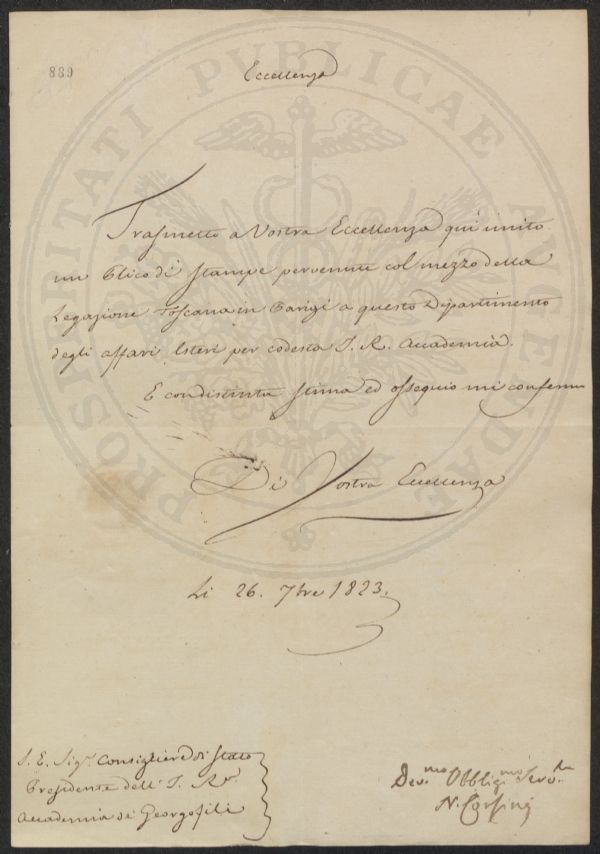 889
Eccellenza
Trasmetto a Vostra Eccellenza qui unito
un Plico di Stampe pervenute col mezzo della
Legazione Toscana in Parigi a questo Dipartimento
degli affari Esteri per codesta I. R. Accademia.
E con distinta stima ed ossequio mi confermo
Di Vostra Eccellenza
Li 26. 7bre 1823.
S. E. Sigr. Consigliere di Stato
Presidente dell' I. Re.
Accademia dei Georgofili
Dev.mo Obblig.mo Serv.re
N. Corsini
PROSPERITATI PVBLICAE AVGENDAE